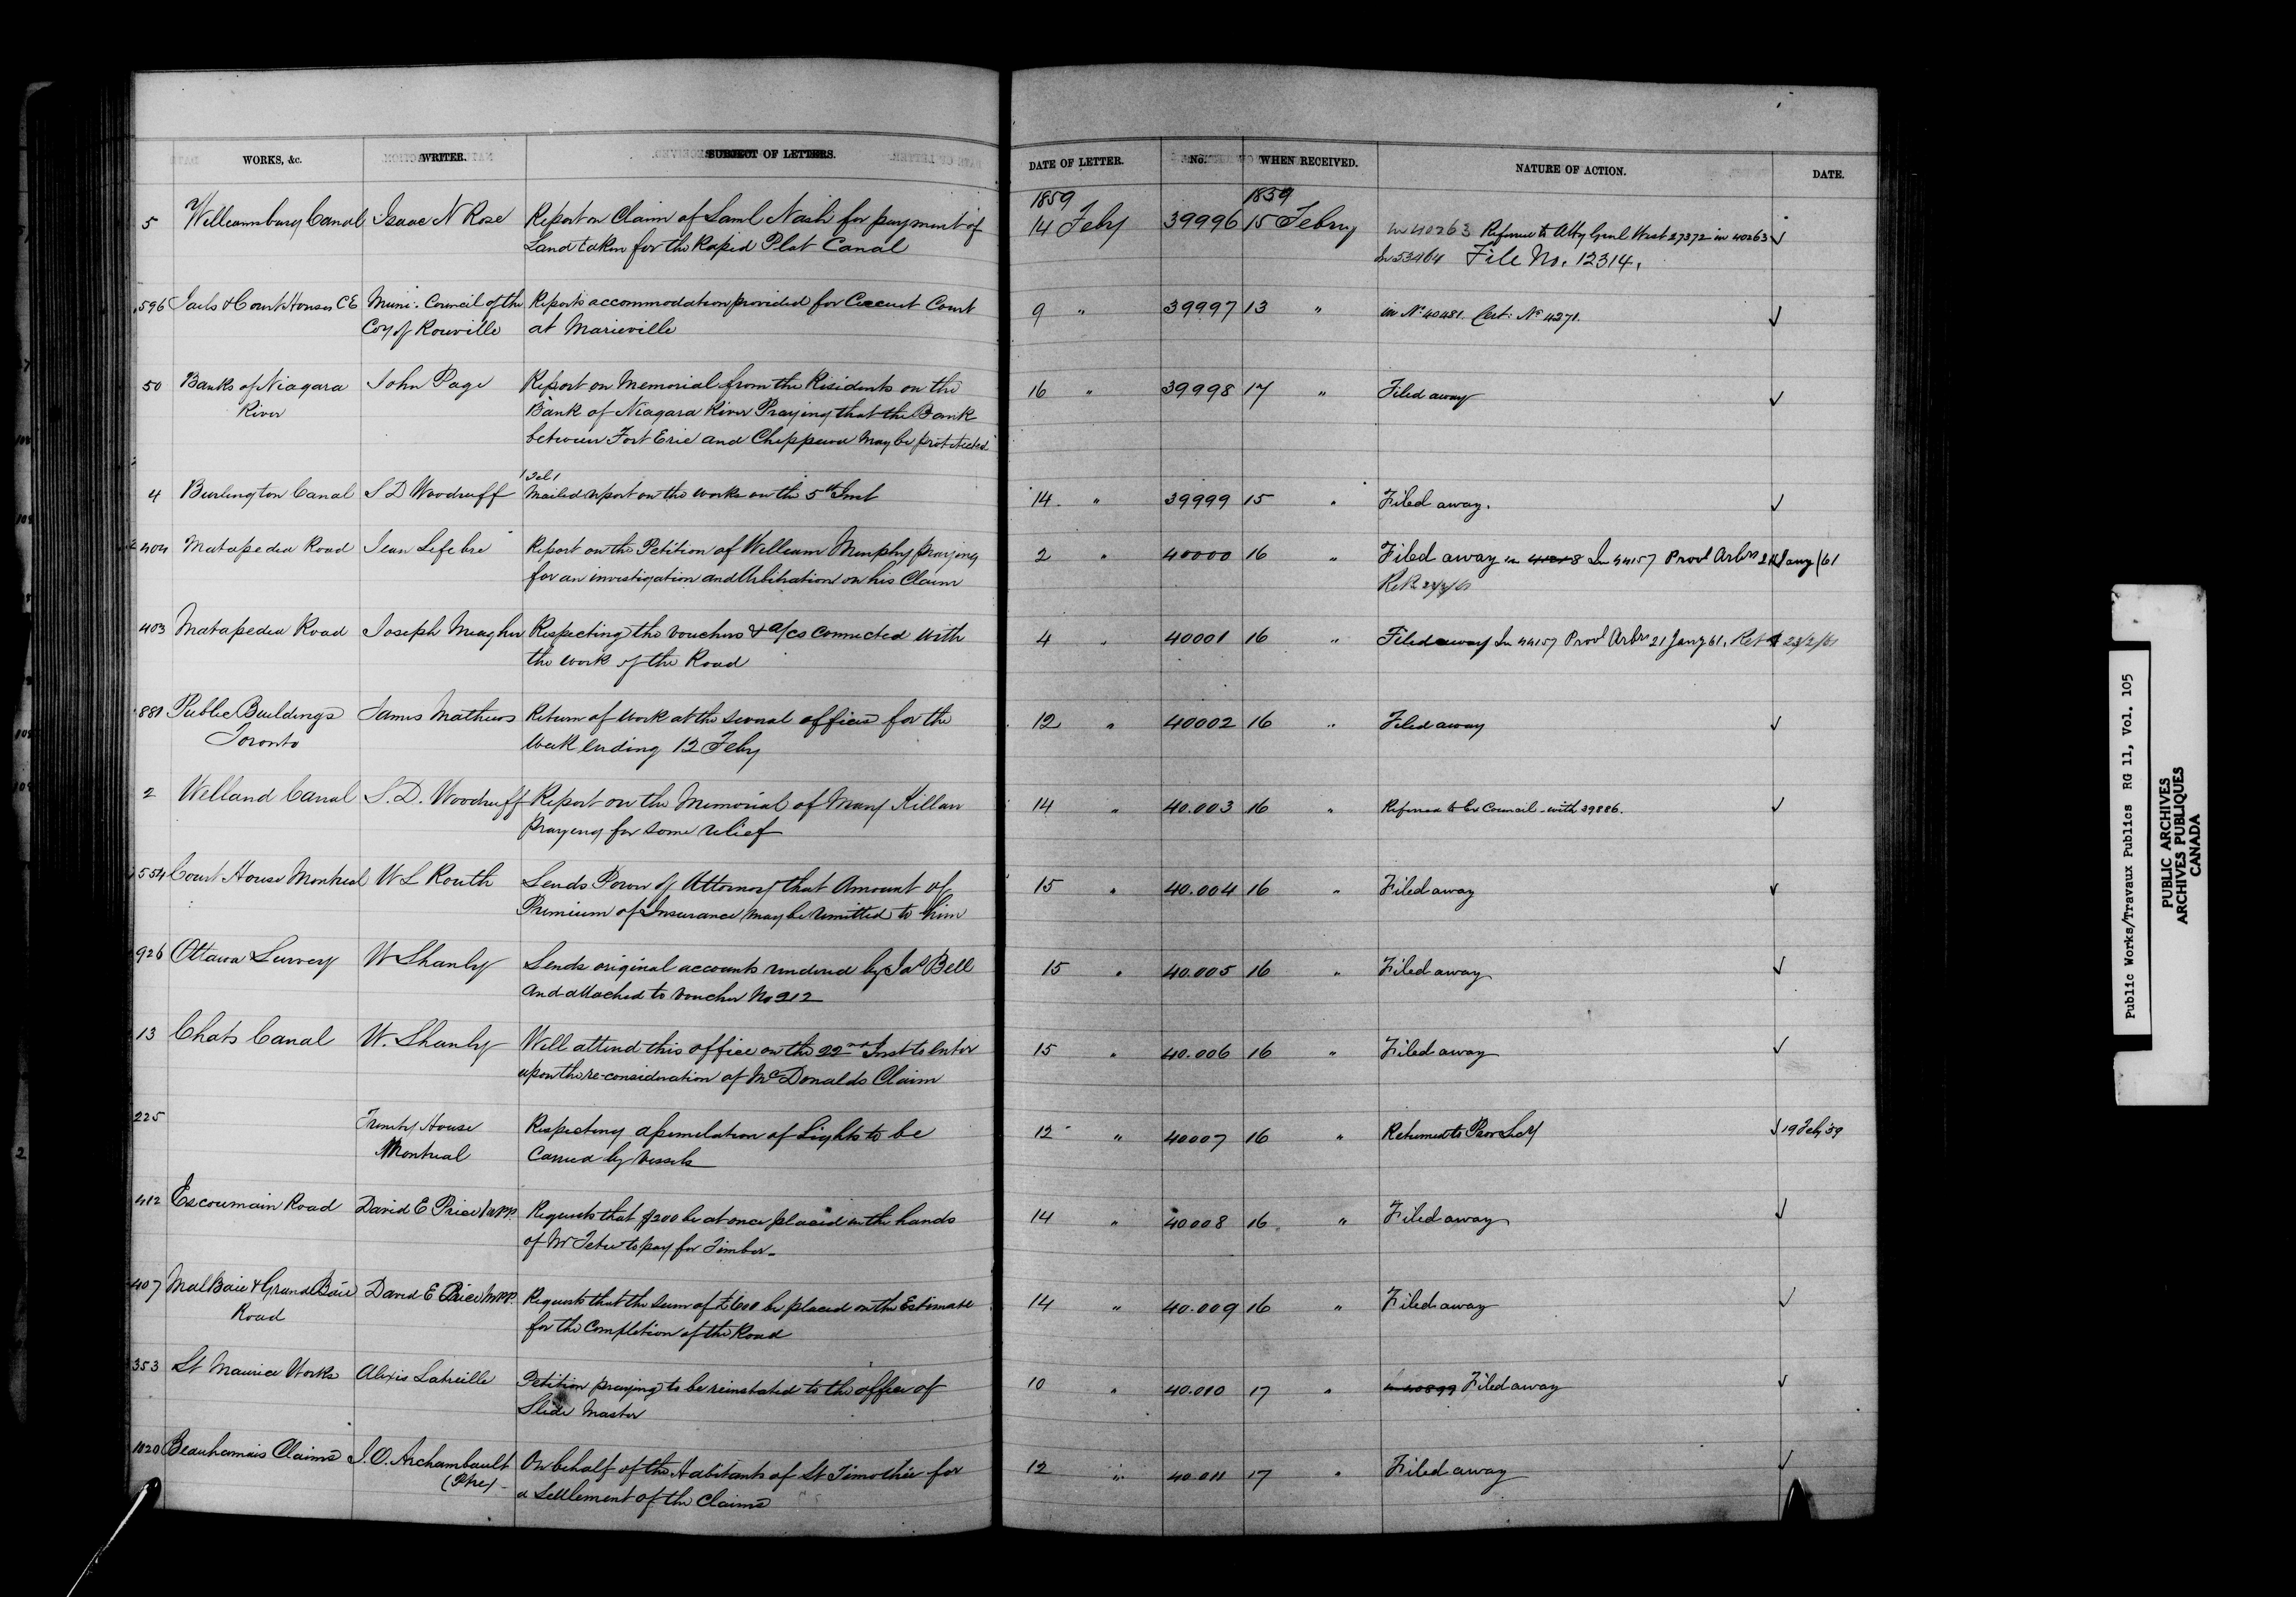 WORKS, &c. WRITER. SUBJECT OF LETTERS. DATE OF LETTER. No. WHEN RECEIVED. NATURE OF ACTION. DATE.
1859 1859
5 Williamsburg Canal Isaac N Rose Report on Claim of Saml Nash for payment of 14 Feby 39996 15 Febry In 40263 Referred to Atty Genl West 27372 in 40263 ✓
Land taken for the Rapid Plat Canal In 53464 File No. 12314.
596 Jails & Court Houses CE Muni. Council of the Reports accommodation provided for Circuit Court 9 " 39997 13 " in No 40481. Cert: No 4271. ✓
Coy of Rouville at Marieville
50 Banks of Niagara John Page Report on Memorial from the Residents on the 16 " 39998 17 " Filed away ✓
River Bank of Niagara River Praying that the Bank
between Fort Erie and Chippewa may be protected
/ Tel /
4 Burlington Canal S D Woodruff Mailed report on the works on the 5th Inst 14 " 39999 15 " Filed away. ✓
404 Matapedia Road Jean Lefebre Report on the Petition of William Murphy praying 2 " 40000 16 " Filed away in In 44157 Provl Arbrs 21 Jany /61
for an investigation and Arbitration on his Claim Ret. 23/2/61
403 Matapedia Road Joseph Meagher Respecting the vouchers & a/cs connected with 4 " 40001 16 " Filed away In 44157 Provl Arbrs 21 Jany 61. Ret 23/2/61
the work of the Road
881 Public Buildings James Mathews Return of work at the several offices for the 12 " 40002 16 " Filed away ✓
Toronto Week ending 12 Feby
2 Welland Canal S. D. Woodruff Report on the Memorial of Mary Killan 14 " 40.003 16 " Referred to Ex Council with 39886. ✓
praying for some relief
554 Court House Montreal W L Routh Sends Power of Attorney that Amount of 15 " 40.004 16 " Filed away ✓
Premium of Insurance may be remitted to him
926 Ottawa Survey W Shanly Sends original accounts rendered by Jas Bell 15 " 40.005 16 " Filed away ✓
and attached to voucher No 212
13 Chats Canal W. Shanly Will attend this office on the 22nd Inst to enter 15 " 40.006 16 " Filed away ✓
upon the re-consideration of McDonalds Claim
225 Trinity House Respecting assimilation of Lights to be 12 " 40007 16 " Returned to Prov Secy ✓ 19 Feby 59
Montreal Carried by Vessels
412 Escoumain Road David E Price M.P.P. Requests that $200 be at once placed in the hands 14 " 40.008 16 " Filed away ✓
of Mr Tetu to pay for Timber
407 Mal Baie & Grand Baie David E Price M.P.P. Requests that the sum of £600 be placed on the Estimate 14 " 40.009 16 " Filed away ✓
Road for the Completion of the Road
353 St Maurice Works Alexis Latreille Petition praying to be reinstated to the office of 10 " 40.010 17 " in 40899 Filed away ✓
Slide Master
1020 Beauharnais Claims J. O. Archambault On behalf of the Habitants of St Timothée for 12 " 40.011 17 " Filed away ✓
(Ptre) a Settlement of the Claims
Public Works/Travaux Publics RG 11, Vol. 105
PUBLIC ARCHIVES
ARCHIVES PUBLIQUES
CANADA